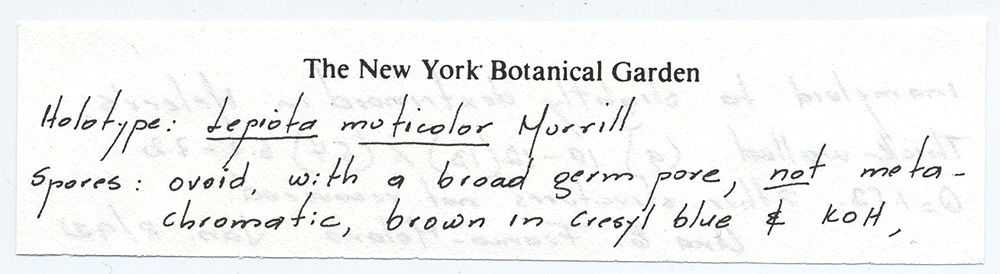 The New York Botanical Garden
Holotype: Lepiota muticolor Murrill
Spores: ovoid, with a broad germ pore, not meta-
chromatic, brown in Cresyl blue & KOH,